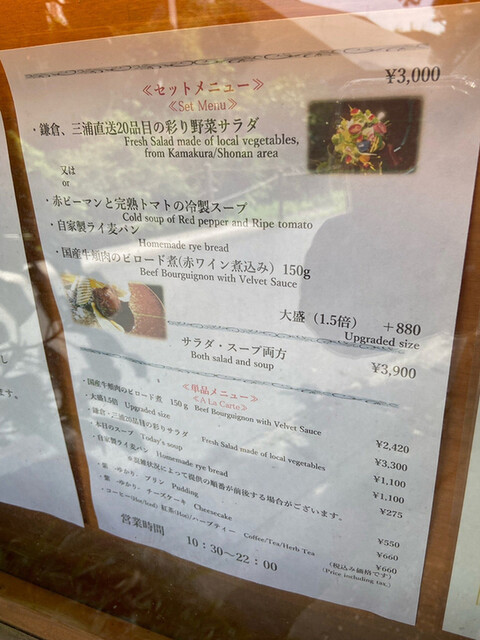 ≪セットメニュー≫
¥3,000
≪Set Menu≫
・鎌倉、三浦直送20品目の彩り野菜サラダ
Fresh Salad made of local vegetables,
from Kamakura/Shonan area
又は
or
・赤ピーマンと完熟トマトの冷製スープ
Cold soup of Red pepper and Ripe tomato
・自家製ライ麦パン
Homemade rye bread
・国産牛頬肉のビロード煮(赤ワイン煮込み) 150g
Beef Bourguignon with Velvet Sauce
大盛（1.5倍） ＋880
Upgraded size
サラダ・スープ両方 ¥3,900
Both salad and soup
≪単品メニュー≫
≪A La Carte≫
・国産牛頬肉のビロード煮 150ｇ Beef Bourguignon with Velvet Sauce ¥2,420
・大盛1.5倍 Upgraded size ¥3,300
・鎌倉・三浦20品目の彩りサラダ Fresh Salad made of local vegetables ¥1,100
・本日のスープ Today's soup ¥1,100
・自家製ライ麦パン Homemade rye bread ¥275
※混雑状況によって提供の順番が前後する場合がございます。
・紫 -ゆかり- プリン Pudding ¥550
・紫 -ゆかり- チーズケーキ Cheesecake ¥660
・コーヒー(Hot/Iced) 紅茶(Hot)/ハーブティー Coffee/Tea/Herb Tea ¥660
(税込み価格です)
(Price including tax.)
営業時間
10：30〜22：00
し
ます。